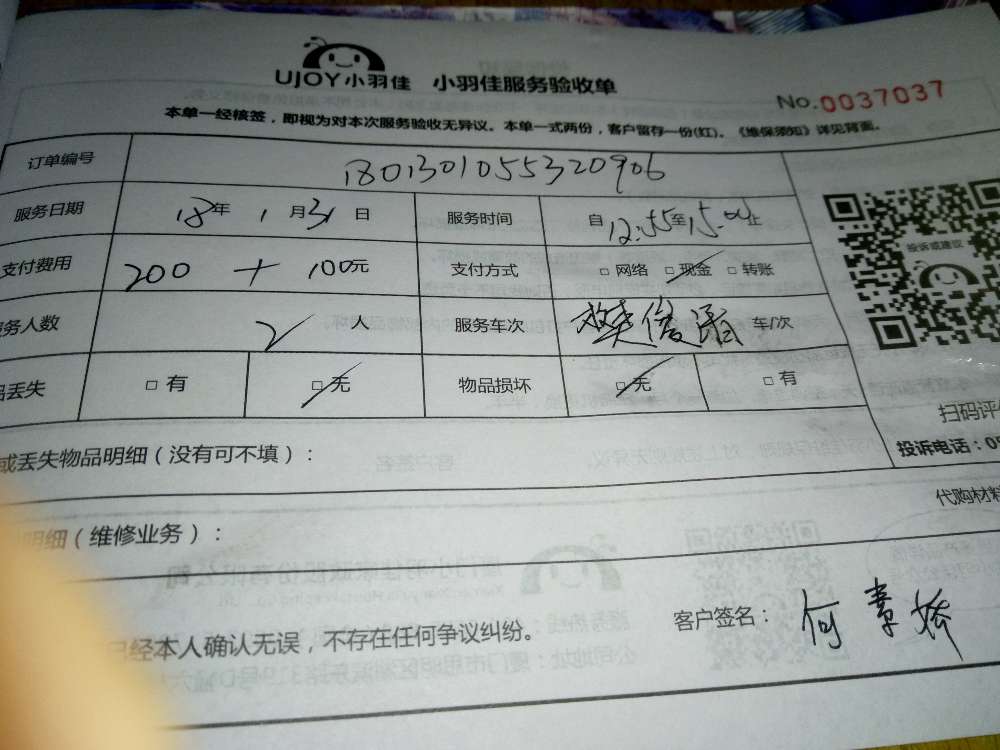 UJOY小羽佳 小羽佳服务验收单
No.0037037
本单一经核签，即视为对本次服务验收无异议。本单一式两份，客户留存一份(红)。《维保须知》详见背面。
订单编号 1801301055320906
服务日期 18年 1月31日 服务时间 自12:55至15:00止
支付费用 200 + 100元 支付方式 □网络 □现金 □转账
务人数 2人 服务车次 樊俊语 车/次
品丢失 □有 □无 物品损坏 □无 □有
投诉或建议
扫码评
或丢失物品明细（没有可不填）：
投诉电话：05
代购材料
明细（维修业务）：
已经本人确认无误，不存在任何争议纠纷。
客户签名：何